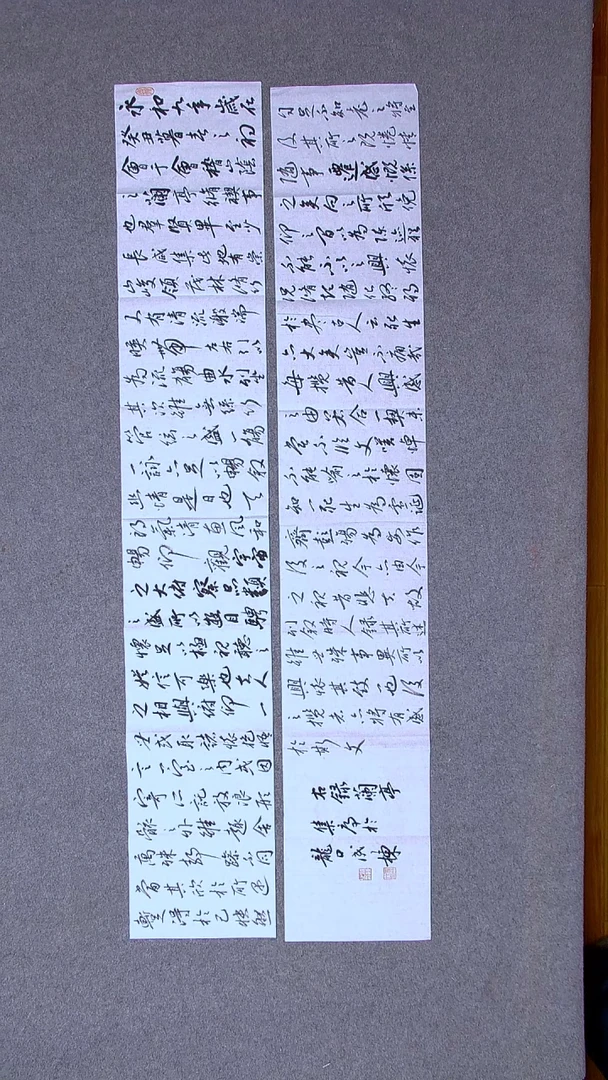 永和九年歲在
癸丑暮春之初
會于會稽山陰
之蘭亭脩禊事
也群賢畢至少
長咸集此地有崇
山峻領茂林脩竹
又有清流激湍
映帶左右引以
為流觴曲水列坐
其次雖無絲竹
管弦之盛一觴
一詠亦足以暢敘
幽情是日也天
朗氣清惠風和
暢仰觀宇宙
之大俯察品類
之盛所以遊目騁
懷足以極視聽之
娛信可樂也夫人
之相與俯仰一
世或取諸懷抱悟
言一室之內或因
寄所託放浪形
骸之外雖趣舍
萬殊靜躁不同
當其欣於所遇
暫得於己快然
自足不知老之將至
及其所之既惓情
隨事遷感慨係
之矣向之所欣俛
仰之間以為陳迹猶
不能不以之興懷
況脩短隨化終期
於盡古人云死生
亦大矣豈不痛哉
每攬昔人興感
之由若合一契未
嘗不臨文嗟悼
不能喻之於懷固
知一死生為虛誕
齊彭殤為妄作
後之視今亦由今
之視昔悲夫故
列敘時人錄其所述
雖世殊事異所以
興懷其致一也後
之攬者亦將有感
於斯文
右錄蘭亭
集序於
龍口